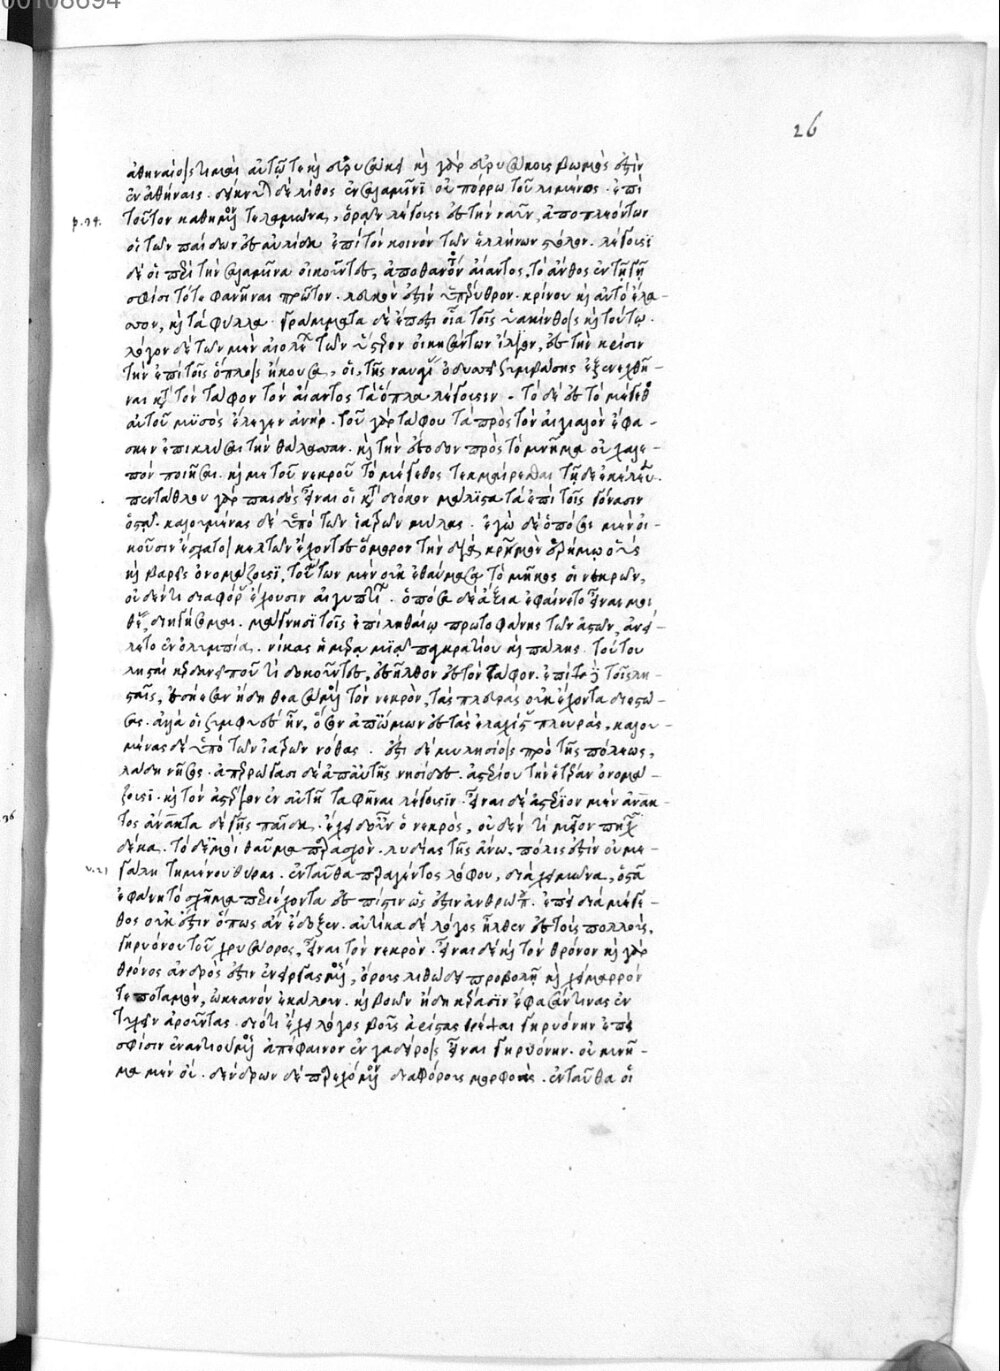 ἀθηναίοις τιμαὶ αὐτῷ τε καὶ εὐρυσάκει καὶ γὰρ εὐρυσάκοις βωμός ἐστιν
ἐν ἀθήναις. δείκνυται δὲ λίθος ἐν σαλαμῖνι οὐ πόρρω τοῦ λιμένος. ἐπὶ
p.34. τοῦτον καθήμενον τελαμῶνα, ὁρᾶν λέγουσι ἐς τὴν ναῦν, ἀποπλεόντων
οἱ τῶν παίδων ἐς αὐλίδα ἐπὶ τὸν κοινὸν τῶν ἑλλήνων στόλον. λέγουσι
δὲ οἱ περὶ τὴν σαλαμῖνα οἰκοῦντες, ἀποθανόντος αἴαντος, τὸ ἄνθος ἐν τῇ γῇ
σφίσι τότε φανῆναι πρῶτον. λευκόν ἐστιν ὑπέρυθρον. κρίνου καὶ αὐτὸ ἔλα-
σσον, καὶ τὰ φύλλα. γράμματα δὲ ἔπεστι οἷα τοῖς ὑακίνθοις καὶ τούτῳ.
λόγον δὲ τῶν μὲν αἰολέων τῶν ὕστερον οἰκησάντων ἴλιον, ἐς τὴν κρίσιν
τὴν ἐπὶ τοῖς ὅπλοις ἤκουσα, οἱ, τῆς ναυαγίας ὀδυσσεῖ συμβάσης ἐξενεχθῆ-
ναι κατὰ τὸν τάφον τὸν αἴαντος τὰ ὅπλα λέγουσιν. τὸ δὲ ἐς τὸ μέγεθος
αὐτοῦ μυσὸς ἔλεγεν ἀνήρ. τοῦ γὰρ τάφου τὰ πρὸς τὸν αἰγιαλὸν ἔφα-
σκεν ἐπικλύσαι τὴν θάλασσαν. καὶ τὴν ἔσοδον πρὸς τὸ μνῆμα οὐ χαλε-
πὸν ποιῆσαι. καί με τοῦ νεκροῦ τὸ μέγεθος τεκμαίρεσθαι τῇδε ἐκέλευε.
πεντάθλου γὰρ παιδὸς εἶναι οἱ κατὰ δίσκον μάλιστα τὰ ἐπὶ τοῖς γόνασιν
ὀστᾶ. καλουμένας δὲ ὑπὸ τῶν ἰατρῶν μύλας. ἐγὼ δὲ ὁπόσοι μὲν οἰ-
κοῦσιν ἔσχατοι κελτῶν ἔχοντες ὅμορον τὴν διὰ κρημὸν ἐρήμῳ οὓς
καὶ βαρεῖς ὀνομάζουσι, τούτων μὲν οὐκ ἐθαύμασα τὸ μῆκος οἱ νεκρῶν,
οὐδέν τι διαφόρως ἔχουσιν αἰγυπτίων. ὁπόσα δὲ ἄξια ἐφαίνετο εἶναι μοι
θέας, διηγήσομαι. μάγνησι τοῖς ἐπὶ ληθαίῳ πρωτοφάνης τῶν ἀστῶν, ἀνεί-
λετο ἐν ὀλυμπίᾳ. νίκας ἡμέρᾳ μιᾷ παγκρατίου καὶ πάλης. τούτου
λῃσταὶ κερδανεῖν που τι δοκοῦντες, ἐσῆλθον ἐς τὸν τάφον. ἐπὶ δὲ τοῖς λη-
σταῖς, ἐσῄεσαν ἤδη θεασόμενοι τὸν νεκρόν, τὰς πλευρὰς οὐκ ἔχοντα διεστώ-
σας. ἀλλά οἱ συμφυὲς ἦν, ὅσον ἀπ' ὤμων ἐς τὰς ἐλαχίστας πλευράς, καλου-
μένας δὲ ὑπὸ τῶν ἰατρῶν νόθας. ἔστι δὲ μιλησίοις πρὸ τῆς πόλεως,
λάδη νῆσος. ἀπερρώγασι δὲ ἀπ' αὐτῆς νησίδες. ἀστερίου τὴν ἑτέραν ὀνομά-
ζουσι. καὶ τὸν ἀστέριον ἐν αὐτῇ ταφῆναι λέγουσιν. εἶναι δὲ ἀστέριον μὲν ἄνακ-
τος ἄνακτα δὲ γῆς παῖδα. ἔχει δ' οὖν ὁ νεκρός, οὐδέν τι μεῖον πηχῶν
δέκα. τὸ δ' ἐμοὶ θαῦμα παρασχόν. λυδίας τῆς ἄνω, πόλις ἐστὶν οὐ με-
γάλη τημένου θύραι. ἐνταῦθα περιραγέντος λόφου, διὰ χειμῶνα, ὀστᾶ
ἐφάνη τὸ σχῆμα περιέχοντα ἐς πίστιν ὡς ἔστιν ἀνθρώπου. ἐπεὶ διὰ μέγε-
θος οὐκ ἔστιν ὅπως ἂν ἔδοξεν. αὐτίκα δὲ λόγος ἦλθεν ἐς τοὺς πολλούς,
γηρυόνου τοῦ χρυσάορος, εἶναι τὸν νεκρόν. εἶναι δὲ καὶ τὸν θρόνον καὶ γὰρ
θρόνος ἀνδρός ἐστιν ἐνειργασμένος, ὄρους λιθώδει προβολῇ καὶ χείμαρρόν
τε ποταμόν, ὠκεανὸν ἐκάλουν. καὶ βοῶν ἤδη κέρασιν ἔφασάν τινας ἐν
τυχεῖν ἀροῦντας. διότι ἔχει λόγος βοῦς ἀρίστας θρέψαι γηρυόνην ἐπεὶ
σφίσιν ἐναντιούμενος ἀπέφαινον ἐν γαδείροις εἶναι γηρυόνην. οὗ μνῆ-
μα μὲν οὔ. δένδρον δὲ παρεχόμενον διαφόρους μορφάς. ἐνταῦθα οἱ
26